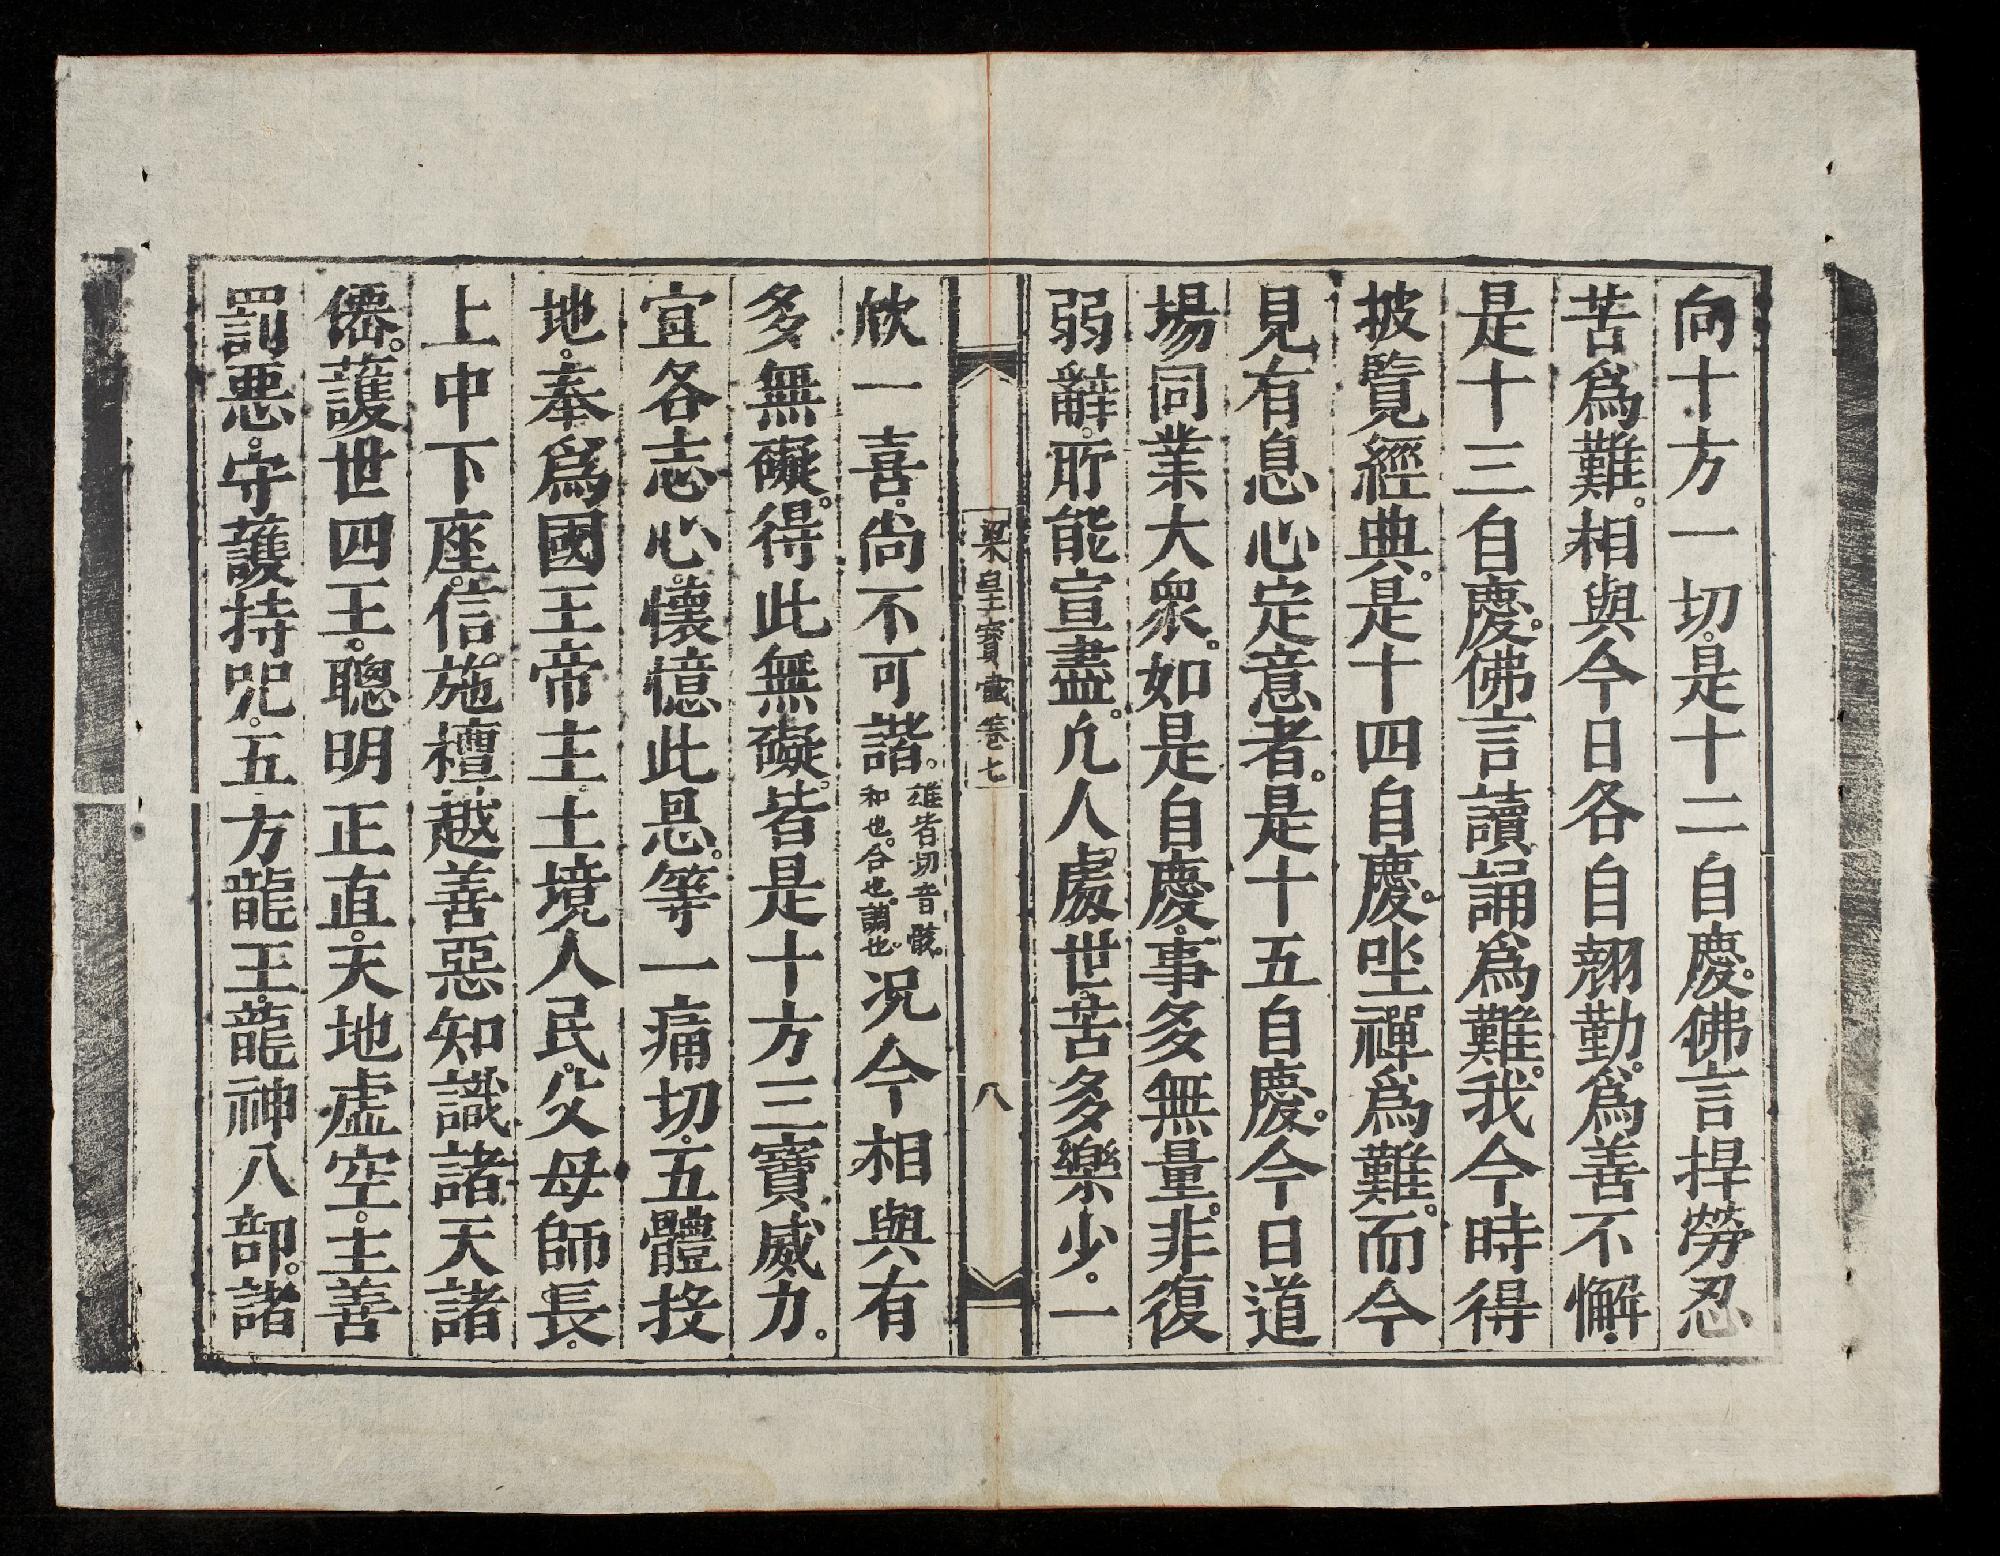 向十方一切。是十二自慶。佛言捍勞忍
苦爲難。相與今日各自翹勤。爲善不懈。
是十三自慶。佛言讀誦爲難。我今時得
披覽經典。是十四自慶。坐禪爲難。而今
見有息心定意者。是十五自慶。今日道
場同業大衆。如是自慶。事多無量。非復
弱辭。所能宣盡。凡人處世。苦多樂少。一
梁皇寶懺卷七 八
欣一喜。尚不可諧。雄皆切音骸。和也。合也。調也。况今相與有
多無礙。得此無礙。皆是十方三寶威力。
宜各志心。懷憶此恩。等一痛切。五體投
地。奉爲國王帝主。土境人民。父母師長。
上中下座。信施檀越善惡知識諸天諸
僊。護世四王。聰明正直。天地虚空。主善
罰惡。守護持咒。五方龍王。龍神八部。諸